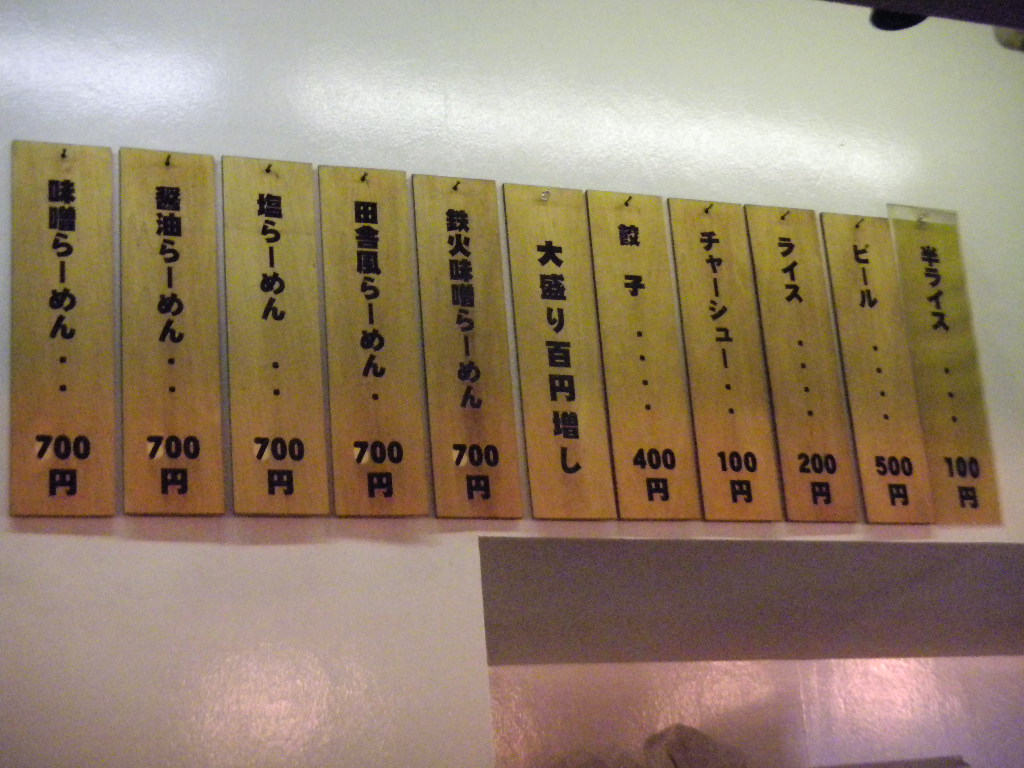 味噌らーめん・・700円
醤油らーめん・・700円
塩らーめん・・700円
田舎風らーめん・700円
鉄火味噌らーめん700円
大盛り百円増し
餃子・・・・400円
チャーシュー・・100円
ライス・・・・200円
ビール・・・・500円
半ライス・・・100円